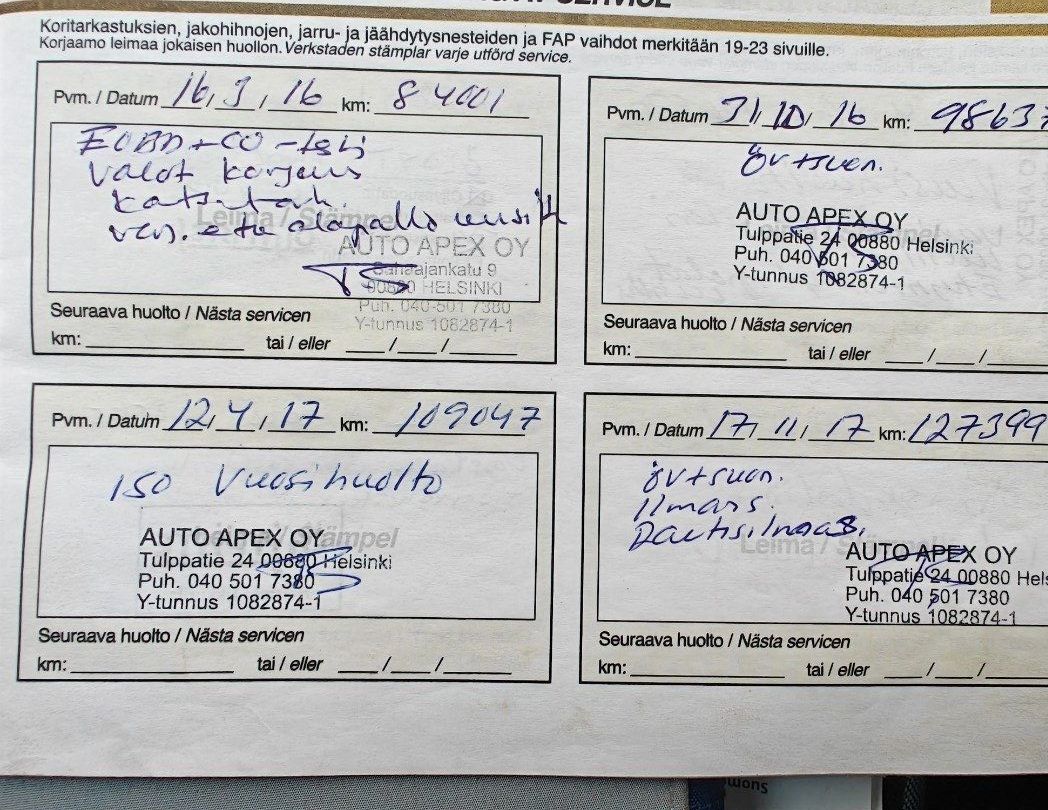 SERVICE
Koritarkastuksien, jakohihnojen, jarru- ja jäähdytysnesteiden ja FAP vaihdot merkitään 19-23 sivuille.
Korjaamo leimaa jokaisen huollon. Verkstaden stämplar varje utförd service.
Pvm. / Datum 16, 3, 16 km: 84001
EOBD + CO -testi
Valot korjaus
katsastus.
vas. etu alapallo uusi
Leima / Stämpel
AUTO APEX OY
Sahaajankatu 9
00880 HELSINKI
Puh. 040-501 7380
Y-tunnus 1082874-1
Seuraava huolto / Nästa servicen
km: tai / eller / /
Pvm. / Datum 31, 10, 16 km: 98637
övtsuon.
AUTO APEX OY
Tulppatie 24 00880 Helsinki
Puh. 040 501 7380
Y-tunnus 1082874-1
Seuraava huolto / Nästa servicen
km: tai / eller / /
Pvm. / Datum 12, 4, 17 km: 109047
150 Vuosihuolto
AUTO APEX OY
Tulppatie 24 00880 Helsinki
Puh. 040 501 7380
Y-tunnus 1082874-1
Seuraava huolto / Nästa servicen
km: tai / eller / /
Pvm. / Datum 17, 11, 17 km: 127399
övtsuon.
Ilmans.
Leima / Stämpel
AUTO APEX OY
Tulppatie 24 00880 Hels
Puh. 040 501 7380
Y-tunnus 1082874-1
Seuraava huolto / Nästa servicen
km: tai / eller / /